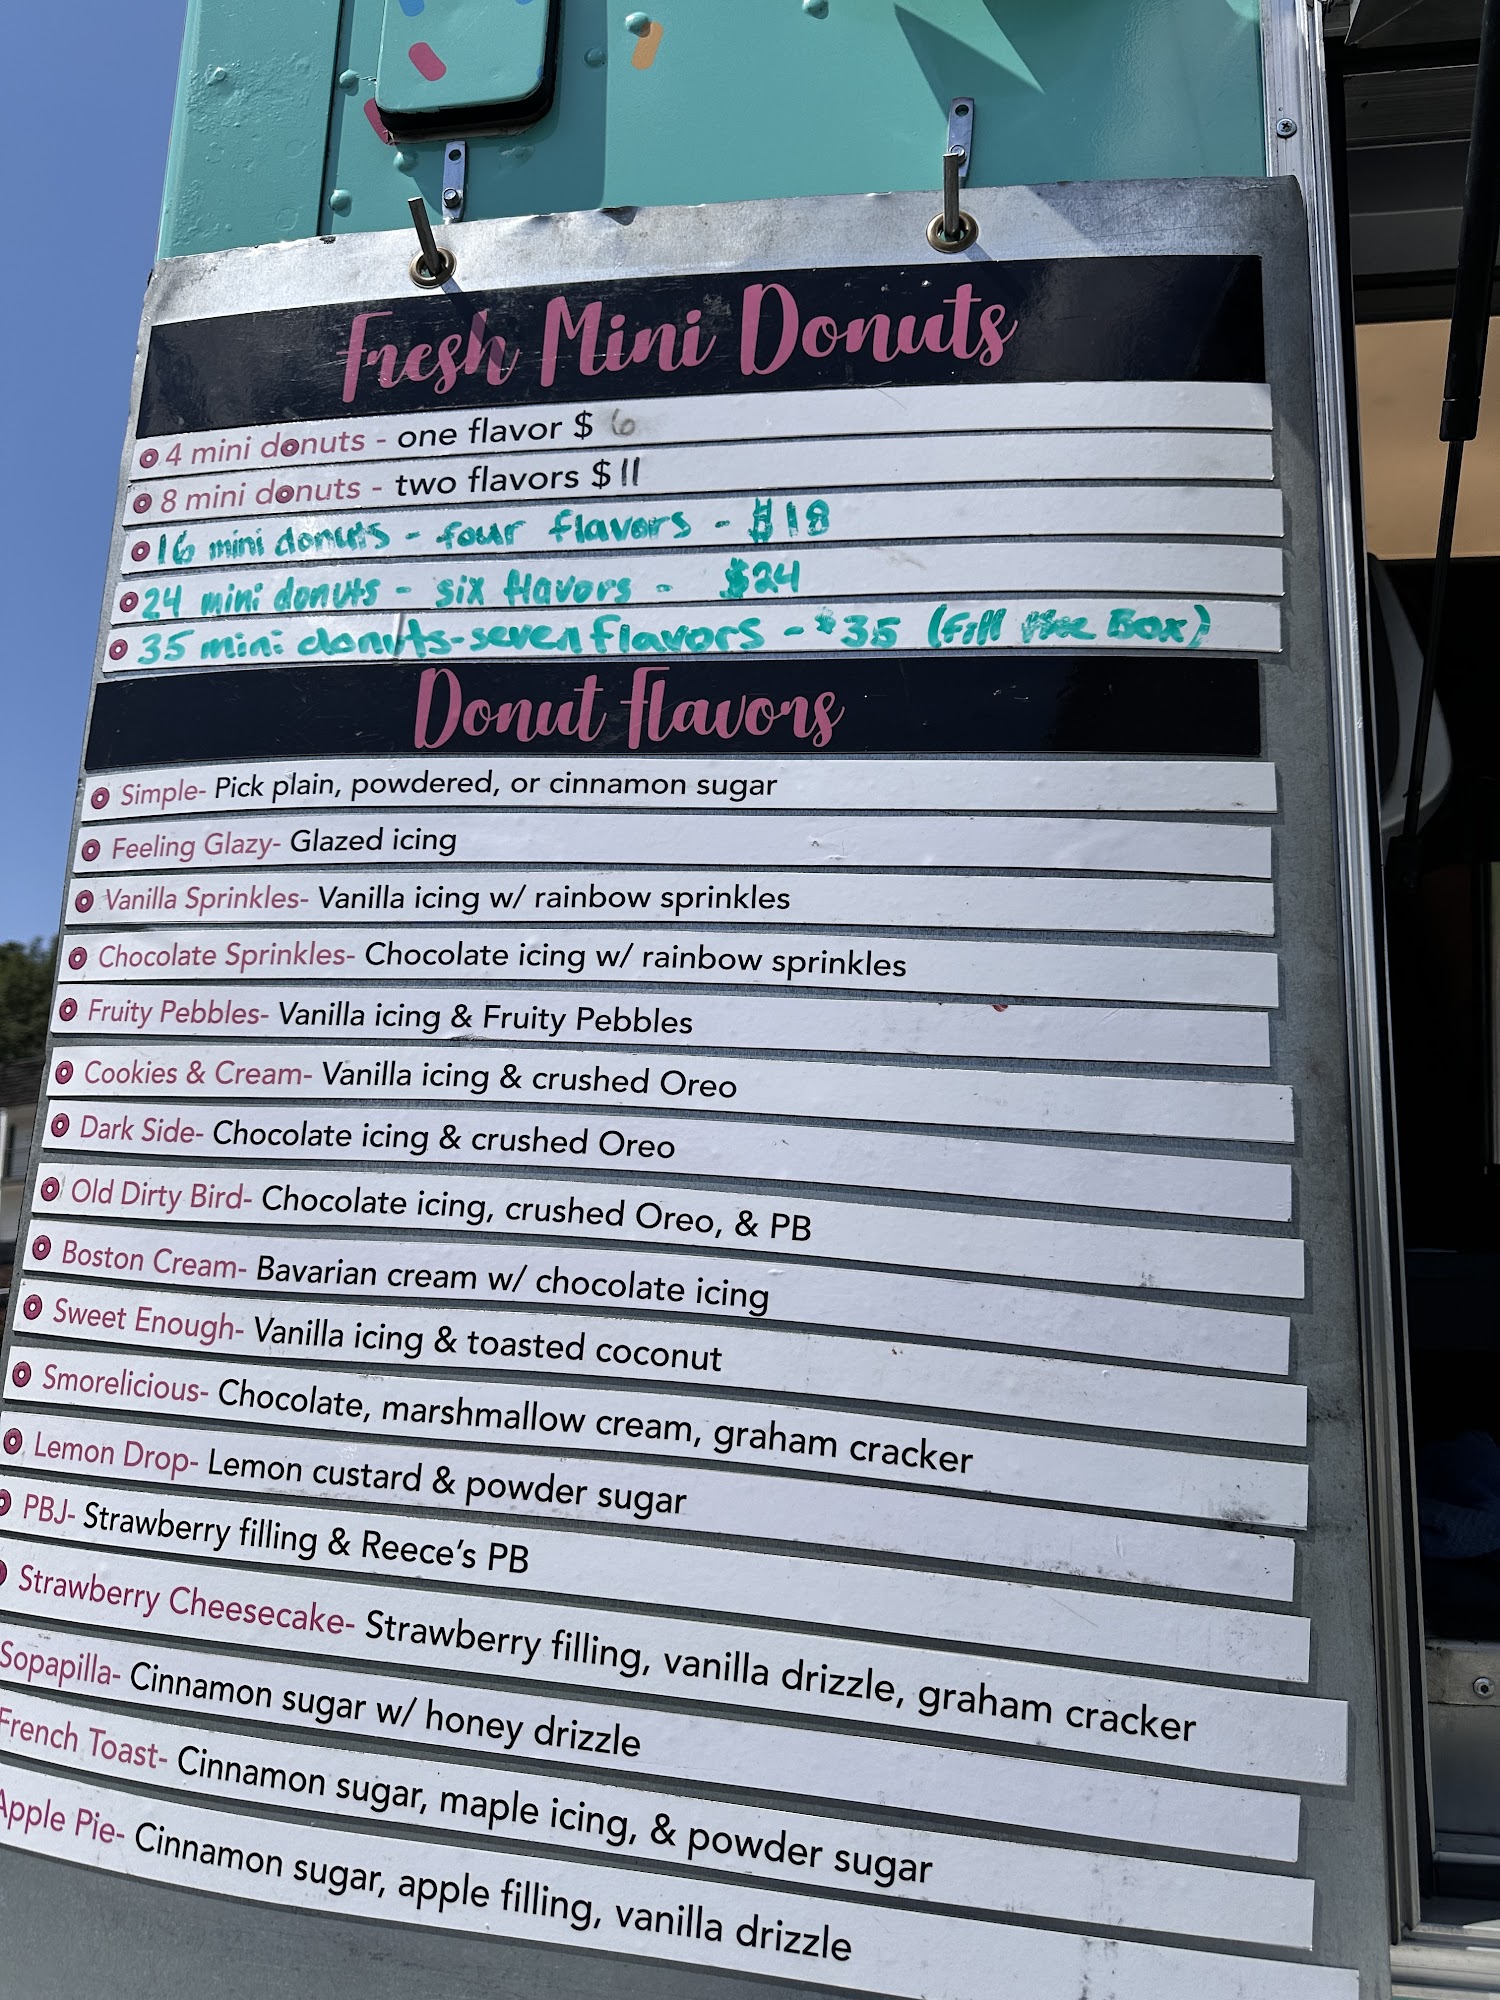 Fresh Mini Donuts
4 mini donuts - one flavor $ 6
8 mini donuts - two flavors $11
16 mini donuts - four flavors - $18
24 mini donuts - six flavors - $24
35 mini donuts - seven flavors - $35 (Fill the Box)
Donut Flavors
Simple- Pick plain, powdered, or cinnamon sugar
Feeling Glazy- Glazed icing
Vanilla Sprinkles- Vanilla icing w/ rainbow sprinkles
Chocolate Sprinkles- Chocolate icing w/ rainbow sprinkles
Fruity Pebbles- Vanilla icing & Fruity Pebbles
Cookies & Cream- Vanilla icing & crushed Oreo
Dark Side- Chocolate icing & crushed Oreo
Old Dirty Bird- Chocolate icing, crushed Oreo, & PB
Boston Cream- Bavarian cream w/ chocolate icing
Sweet Enough- Vanilla icing & toasted coconut
Smorelicious- Chocolate, marshmallow cream, graham cracker
Lemon Drop- Lemon custard & powder sugar
PBJ- Strawberry filling & Reece's PB
Strawberry Cheesecake- Strawberry filling, vanilla drizzle, graham cracker
Sopapilla- Cinnamon sugar w/ honey drizzle
French Toast- Cinnamon sugar, maple icing, & powder sugar
Apple Pie- Cinnamon sugar, apple filling, vanilla drizzle